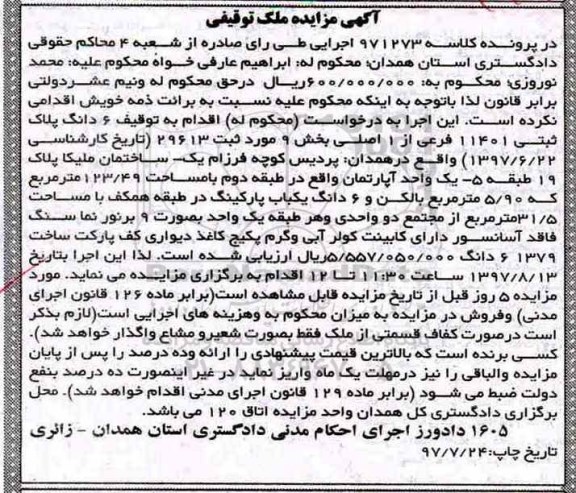 آگهی مزایده ملک توقیفی
در پرونده کلاسه ۹۷۱۲۷۳ اجرایی طی رای صادره از شعبه ۴ محاکم حقوقی
دادگستری استان همدان: محکوم له: ابراهیم عارفی خواه محکوم علیه: محمد
نوروزی: محکوم به: ۶۰۰/۰۰۰/۰۰۰ریال درحق محکوم له ونیم عشردولتی
برابر قانون لذا باتوجه به اینکه محکوم علیه نسبت به برائت ذمه خویش اقدامی
نکرده است. این اجرا به درخواست (محکوم له) اقدام به توقیف ۶ دانگ پلاک
ثبتی ۱۱۴۰۱ فرعی از ۱ اصلی بخش ۹ مورد ثبت ۲۹۶۱۳ (تاریخ کارشناسی
۱۳۹۷/۶/۲۲) واقع درهمدان: پردیس کوچه فرزام یک- ساختمان ملیکا پلاک
۱۹ طبقه ۵- یک واحد آپارتمان واقع در طبقه دوم بامساحت ۱۲۳/۴۹مترمربع
که ۵/۹۰ مترمربع بالکن و ۶ دانگ یکباب پارکینگ در طبقه همکف با مساحت
۳۱/۵مترمربع از مجتمع دو واحدی وهر طبقه یک واحد بصورت ۹ برنور نما سنگ
فاقد آسانسور دارای کابینت کولر آبی وگرم پکیج کاغذ دیواری کف پارکت ساخت
۱۳۷۹ ۶ دانگ ۵/۵۵۷/۰۵۰/۰۰۰ریال ارزیابی شده است. لذا این اجرا بتاریخ
۱۳۹۷/۸/۱۳ ساعت ۱۱:۳۰ تا ۱۲ اقدام به برگزاری مزایده می نماید. مورد
مزایده ۵ روز قبل از تاریخ مزایده قابل مشاهده است(برابر ماده ۱۲۶ قانون اجرای
مدنی) وفروش در مزایده به میزان محکوم به وهزینه های اجرایی است(لازم بذکر
است درصورت کفاف قسمتی از ملک فقط بصورت شعیرو مشاع واگذار خواهد شد).
کسی برنده است که بالاترین قیمت پیشنهادی را ارائه وده درصد را پس از پایان
مزایده والباقی را نیز درمهلت یک ماه واریز نماید در غیر اینصورت ده درصد بنفع
دولت ضبط می شود (برابر ماده ۱۲۹ قانون اجرای مدنی اقدام خواهد شد). محل
برگزاری دادگستری کل همدان واحد مزایده اتاق ۱۲۰ می باشد.
۱۶۰۵ دادورز اجرای احکام مدنی دادگستری استان همدان - زائری
تاریخ چاپ:۹۷/۷/۲۴